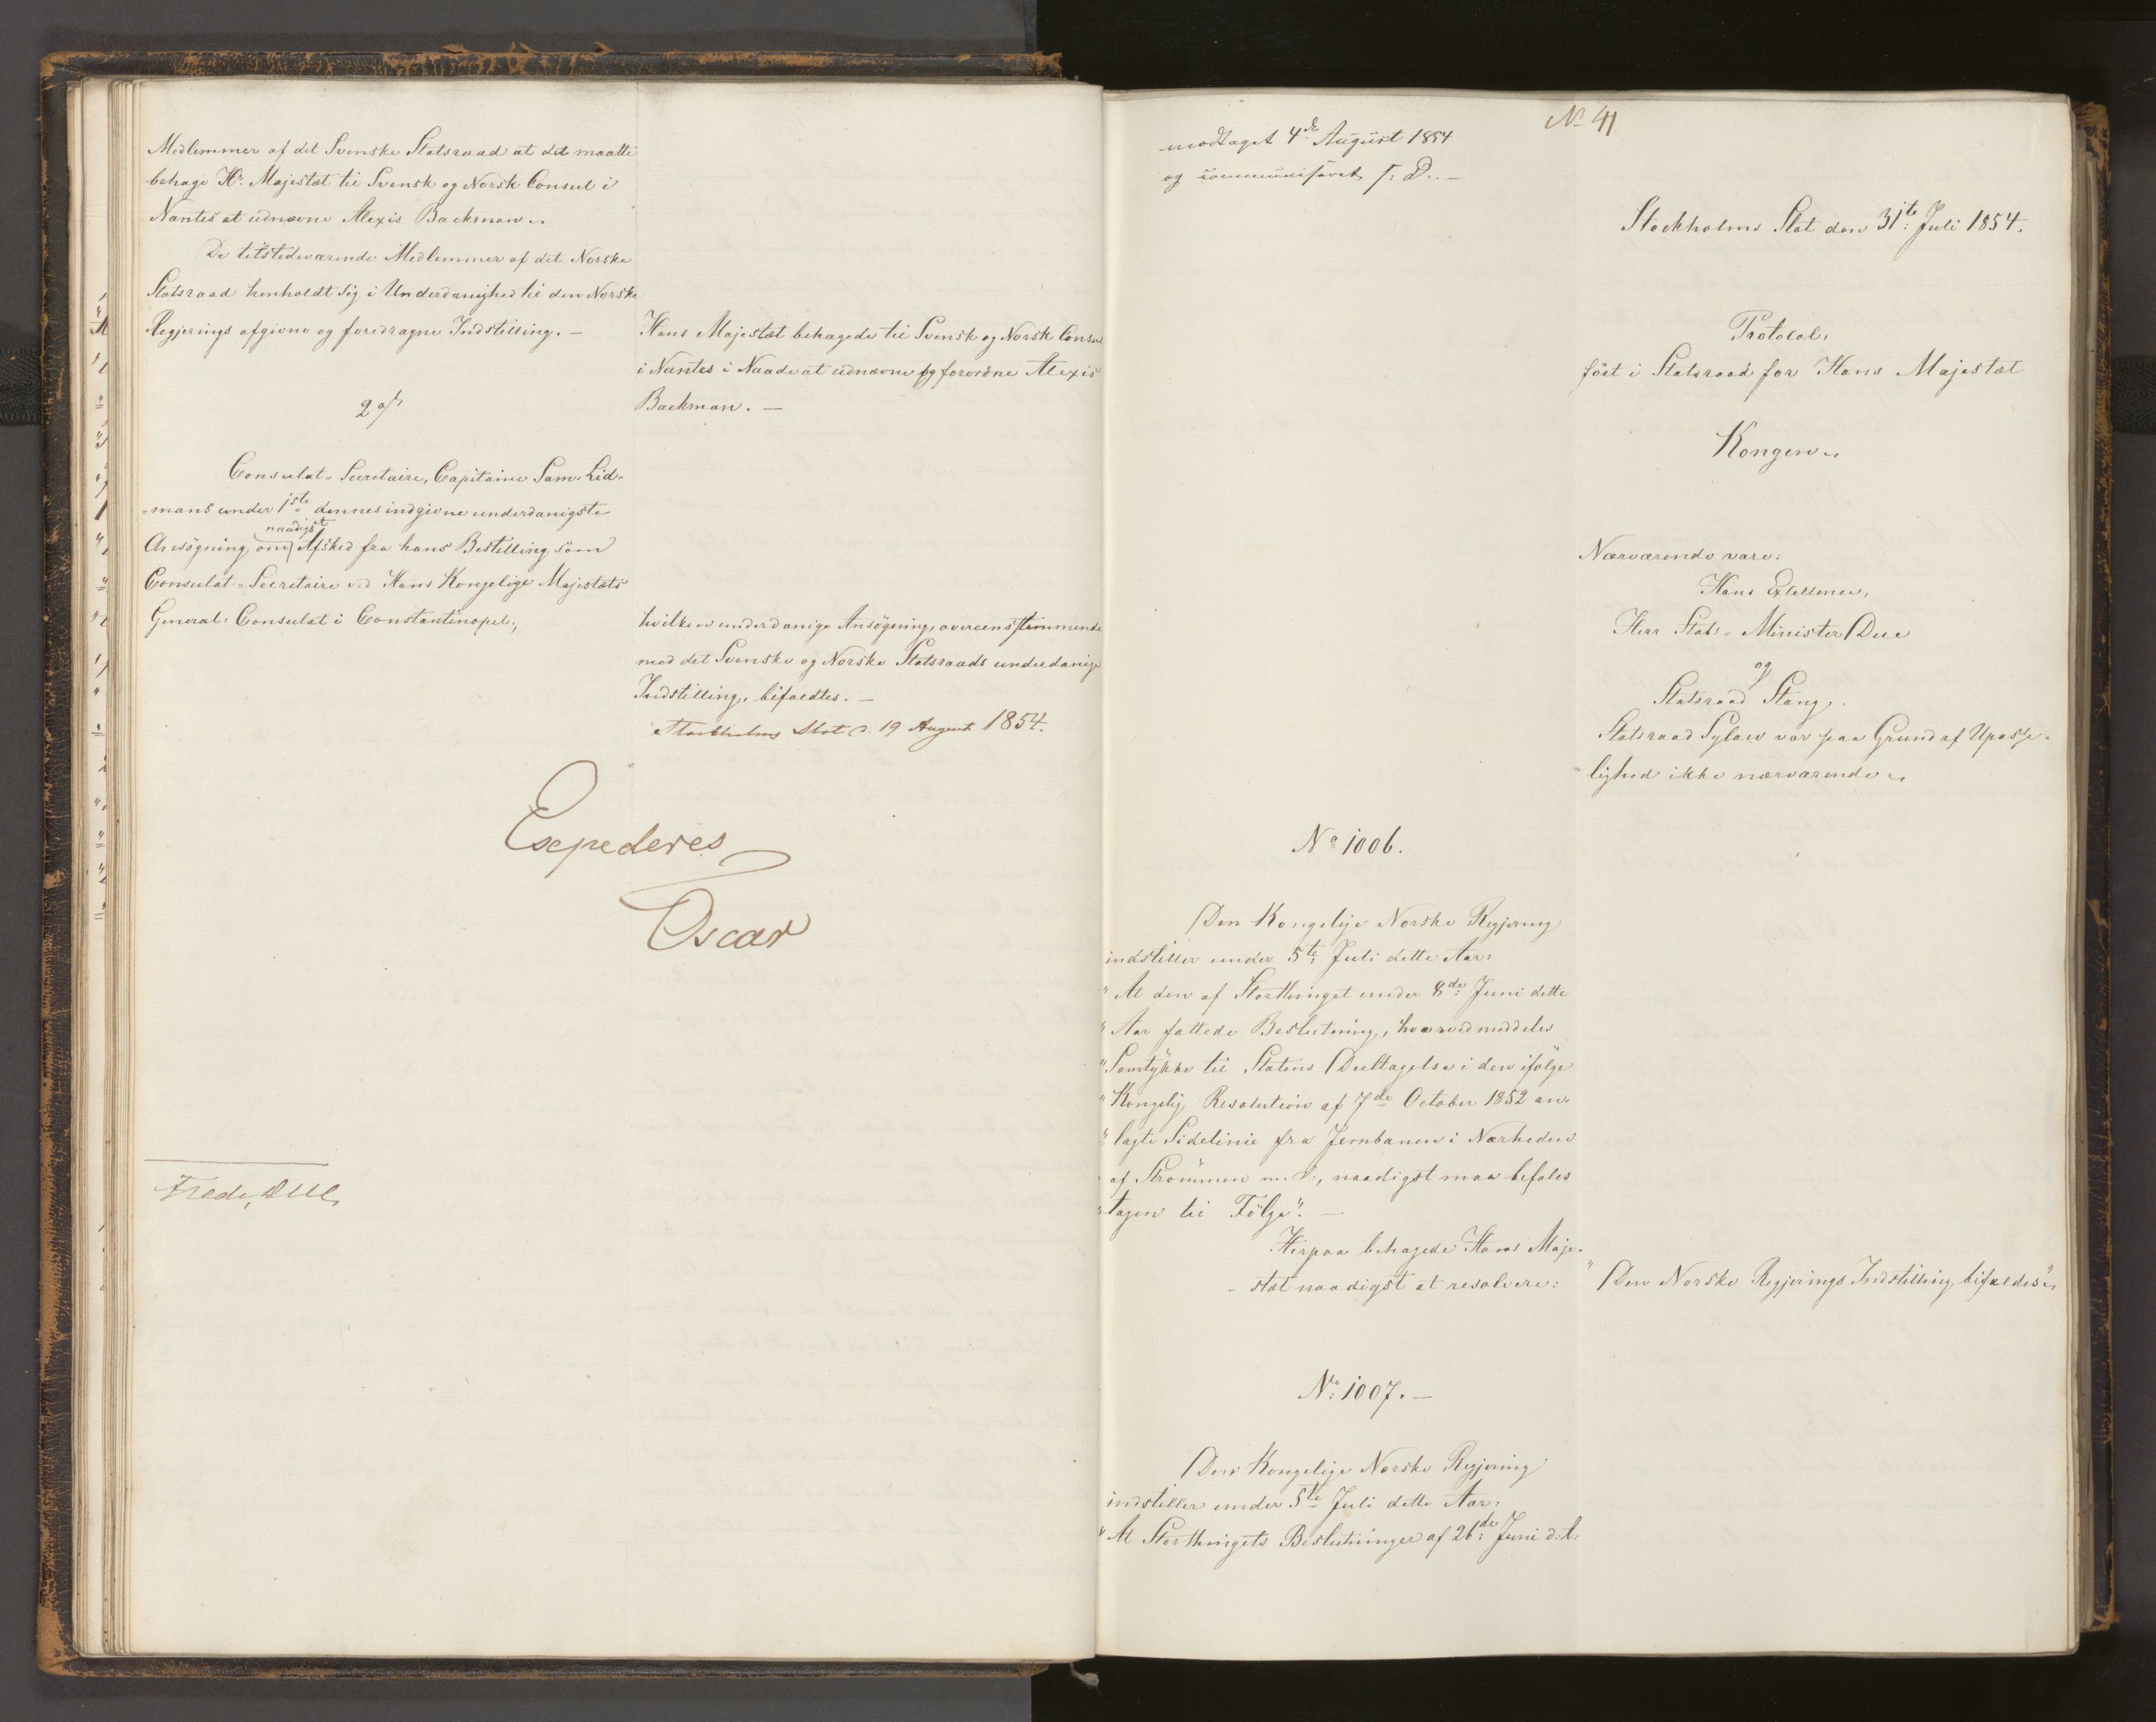 Medlemmer af det Svenske Statsraad at det maatte
behage Hs. Majestæt til Svensk og Norsk Consul i
Nantes at udnævne Alexis Backman.
De tilstedeværende Medlemmer af det Norske
Statsraad henholdt sig i Underdanighed til den Norske
Regjerings afgivne og foredragne Indstilling. —
Hans Majestæt behagede til Svensk og Norsk Consul
i Nantes i Naade at udnævne og forordne Alexis
Backman. —
2o/
Consulat-Secretaire, Capitaine Sam. Lid-
-mans under 1ste dennes indgivne underdanigste
naadigst
Ansögning om Afsked fra hans Bestilling som
Consulat-Secretaire ved Hans Kongelige Majestæts
General-Consulat i Constantinopel,
hvilken underdanige Ansögning, overeensstemmende
med det Svenske og Norske Statsraads underdanige
Indstilling, bifaldtes. —
Stockholms Slot d. 19 August 1854.
Expederes
Oscar
Fredr. Due
No 41
modtaget 4de August 1854
og communiseret s: D. —
Stockholms Slot den 31te Juli 1854.
Protocol,
fört i Statsraad for Hans Majestæt
Kongen.
Nærværende vare:
Hans Excellence,
Herr Stats-Minister Due
og
Statsraad Stang.
Statsraad Sylow var paa Grund af Upasse-
lighed ikke nærværende.
No 1006.
Den Kongelige Norske Regjering
indstiller under 5te Juli dette Aar:
"At den af Storthinget under 8de Juni dette
"Aar fattede Beslutning, hvorved meddeles
"Samtykke til Statens Deeltagelse i den ifölge
"Kongelig Resolution af 7de October 1852 an-
"lagte Sidelinie fra Jernbanen i Nærheden
"af Strömmen m. V., naadigst maa befales
"tagen til Fölge". —
Herpaa behagede Hans Maje-
-stæt naadigst at resolvere:
"Den Norske Regjerings Indstilling bifaldes".
No 1007. —
Den Kongelige Norske Regjering
indstiller under 5te Juli dette Aar:
"At Storthingets Beslutninger af 26de Juni d: A: